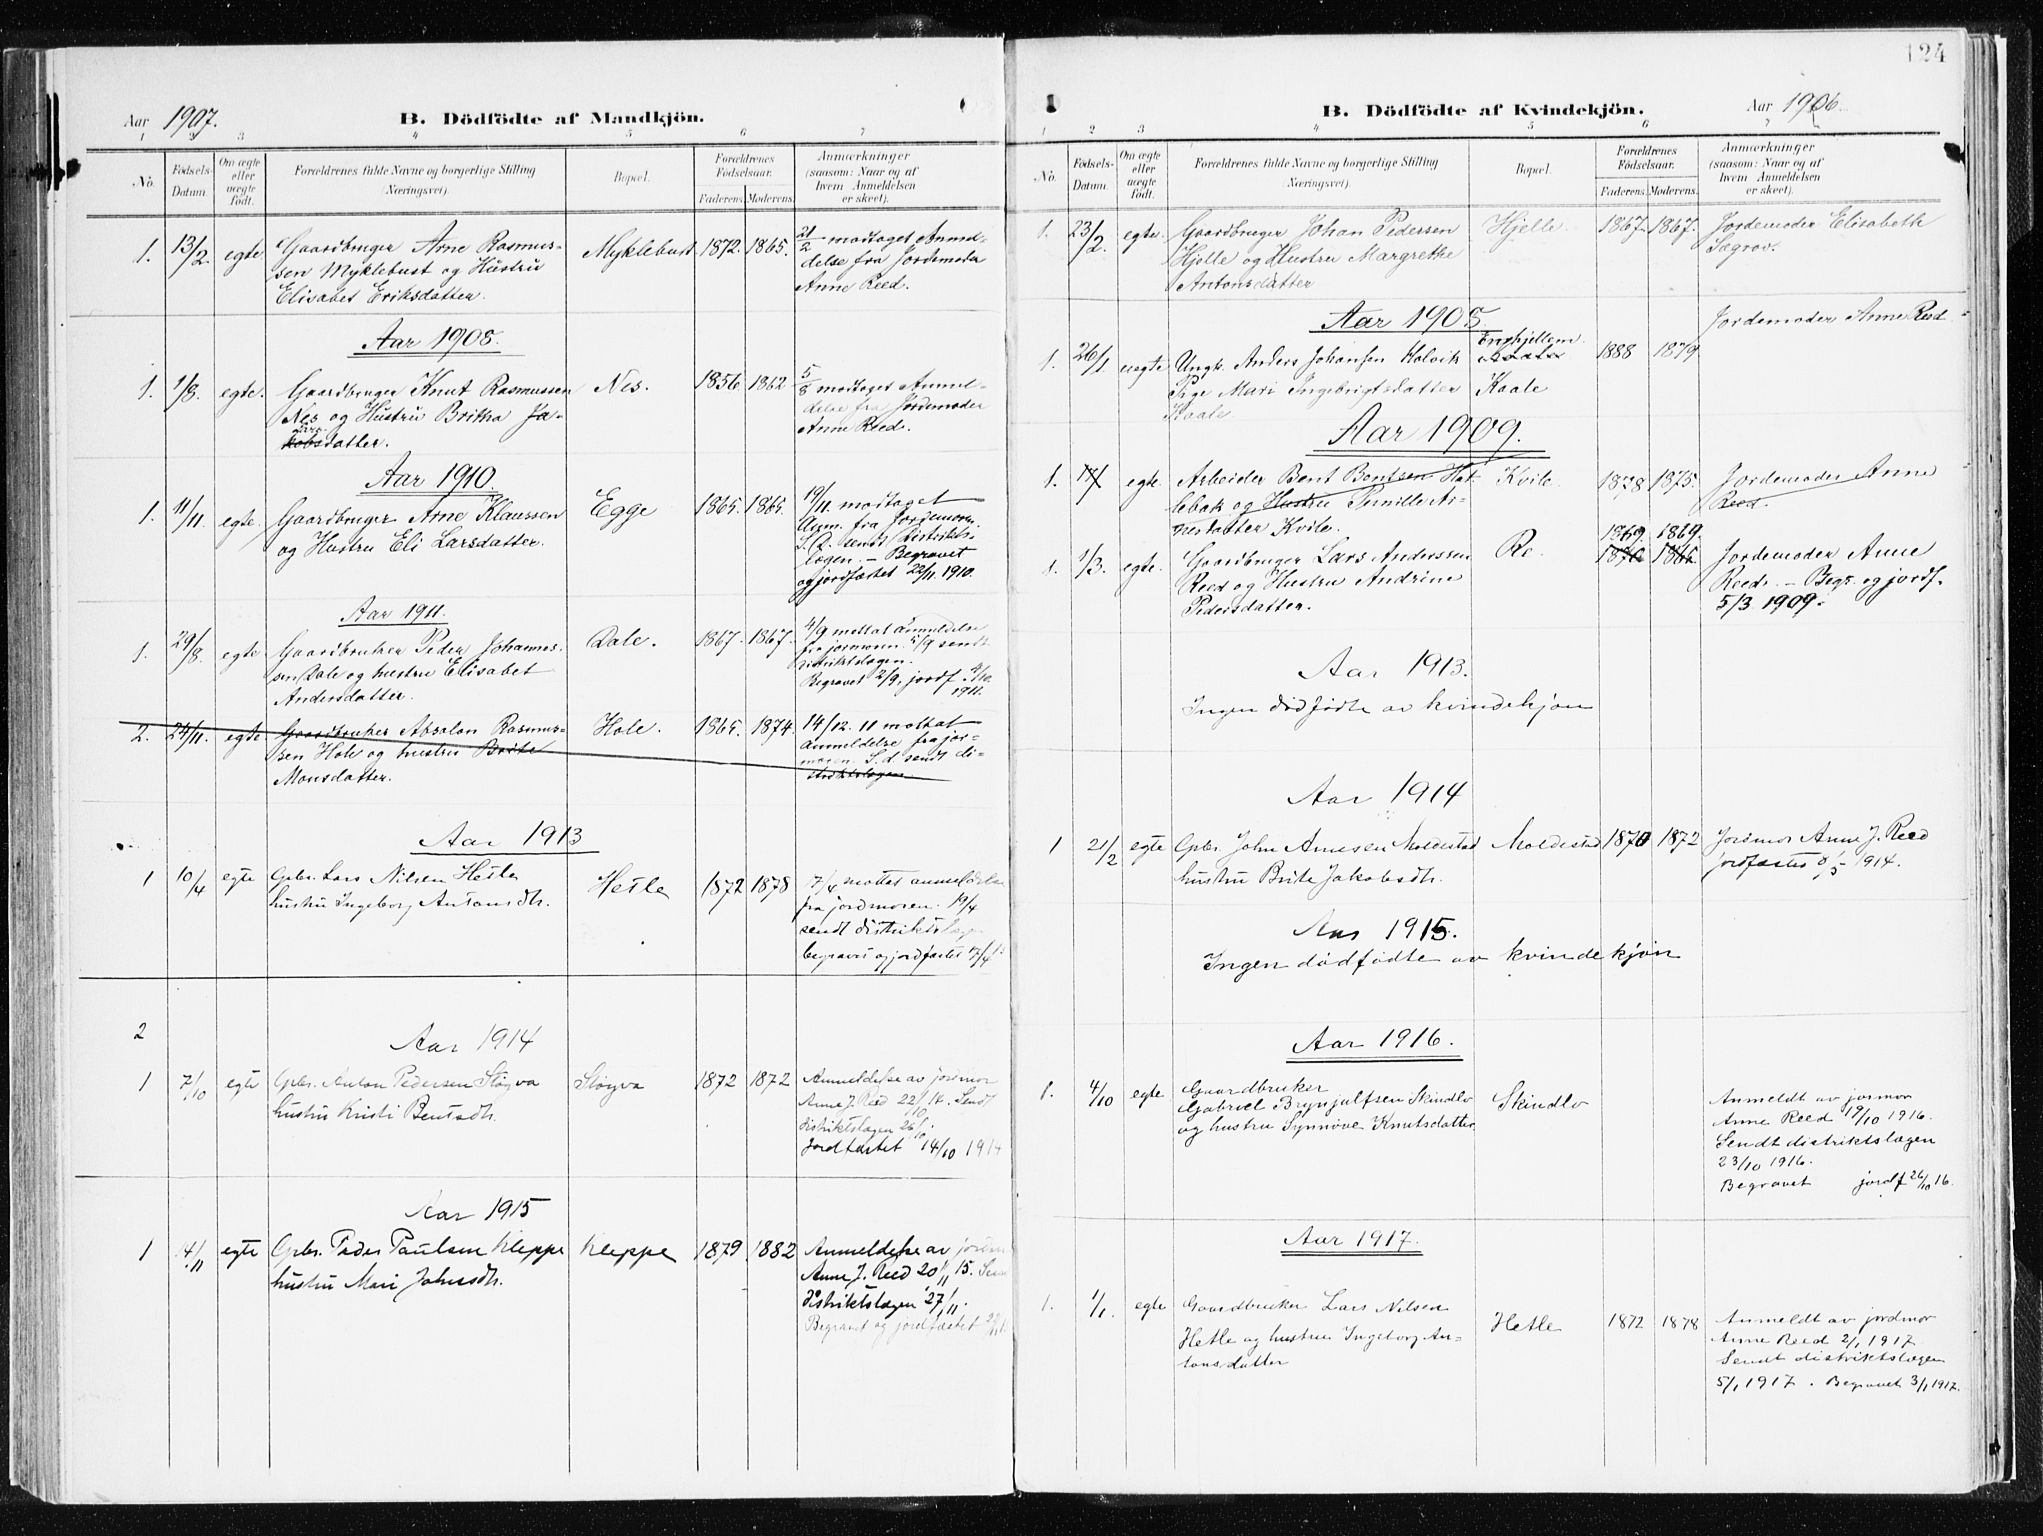 124
Aar 1907.
B. Dödfödte af Mandkjön.
1 2 3 4 5 6 7
No.
Fødsels-Datum.
Om ægte eller uægte født.
Forældrenes fulde Navne og borgerlige Stilling
Næringsvei).
Bopæl.
Forældrenes Fødselsaar.
Faderens. Moderens.
Anmærkninger
(saasom: Naar og af
hvem Anmeldelsen
er skeet).
1. 13/2. egte. Gaardbruger Arne Rasmus- Myklebust 1872. 1865. 21/2 modtaget Anmel-
sen Myklebust og Hustru delse fra Jordemoder
Elisabet Eriksdatter. Anne Reed.
Aar 1908.
1. 1/8. egte. Gaardbruger Knut Rasmussen Nes. 1856. 1862. 5/8 modtaget Anmel-
Nes og Hustru Britha Ja- delse fra Jordemoder
kobsdatter. Anne Reed.
Aar 1910.
1. 11/11. egte. Gaardbruger Arne Klaussen Egge 1865. 1865. 19/11. modtaget
og Hustru Eli Larsdatter. Anm. fra Jordemoren.
S. D. sendt Distrikts-
lægen. – Begravet
og jordfæstet 22/11. 1910.
Aar 1911.
1. 29/8. egte. Gaardbruker Peder Johannes- Dale. 1867. 1867. 4/9 mottat anmeldelse
sen Dale og hustru Elisabet fra jormoren. 5/9 sendt
Andersdatter. distriktslægen.
Begravet 2/9, jordf. 4/10
1911.
2. 24/11. egte Gaardbruker Absalon Rasmus- Hole. 1865. 1874. 14/12. 11 mottat
sen Hole og hustru Brite anmeldelse fra jor-
Monsdatter. moren. S.d. sendt di-
striktslægen.
Aar 1913
1 10/4 egte Gpbr. Lars Nilsen Hetle Hetle 1872 1878 17/4 mottat anmeldelse
hustru Ingeborg Antonsdtr. fra jordmoren. 19/4
sendt distriktslæge
begravet og jordfæstet 17/4
2
Aar 1914
1 7/10 egte Gpbr. Anton Pedersen Støyva Støyva 1872 1872 Anmeldelse av jordmor
hustru Kristi Bentsdtr. Anne J. Reed 22/10 14. Sendt
distriktslægen 26/10.
Jordfæstet 14/10 1914
Aar 1915
1 14/11 egte Gpbr. Peder Paulsen Kleppe Kleppe 1879 1882 Anmeldelse av jordm
hustru Mari Johnsdtr. Anne J. Reed 20/11 15. Sendt
distriktslægen 27/11.
Begravet og jordfæstet
B. Dödfödte af Kvindekjön.
Aar 1906.
1 2 3 4 5 6 7
No.
Fødsels-Datum.
Om ægte eller uægte født.
Forældrenes fulde Navne og borgerlige Stilling
Næringsvei).
Bopæl.
Forældrenes Fødselsaar.
Faderens. Moderens.
Anmærkninger
(saasom: Naar og af
hvem Anmeldelsen
er skeet).
1. 23/2. egte. Gaardbruger Johan Pedersen Hjelle. 1867. 1867. Jordemoder Elisabeth
Hjelle og Hustru Margrethe Sægrov.
Antonsdatter
Aar 1905.
1. 26/1 uegte Ungk. Anders Johansen Kolvik 1888 1879. Jordemoder Anne Reed
Pige Mari Ingebrigtsdatter Kaale
Kaale
Aar 1909.
1. egte. Arbeider Bent Bentsen Kvile. 1878 1875. Jordemoder Anne
og Hustru Pernille Ar- Reed.
nesdatter Kvile.
1869. 1869.
1. 1/3. egte. Gaardbruger Lars Anderssen Re. Jordemoder Anne
Reed og Hustru Andrine Reed. – Begr. og jordf.
Pedersdatter. 5/3 1909.
Aar 1913.
Ingen dødfødte av kvindekjøn
Aar 1914
1 21/2 egte Gpbr. John Arnesen Moldestad Moldestad 1870 1872 Jordmor Anne J. Reed
hustru Brite Jakobsdtr. jordfæstet 8/3 1914.
Aar 1915.
Ingen dødfødte av kvindekjøn
Aar 1916.
1. 4/10 egte Gaardbruker
Gabriel Brynjulfsen Skindlo Skindlo Anmeldt av jormor
og hustru Synnøve Knutsdatter. Anne Reed 19/10 1916.
Sendt distriktslægen
23/10 1916.
Begravet jordf. 26/10 16.
Aar 1917.
1. 1/1. egte Gaardbruker Lars Nilsen Hetle 1872 1878 Anmeldt av jordmor
Hetle og hustru Ingeborg An- Anne Reed 2/1 1917
tonsdatter Sendt distriktslægen
5/1 1917. Begravet 3/1 1917.